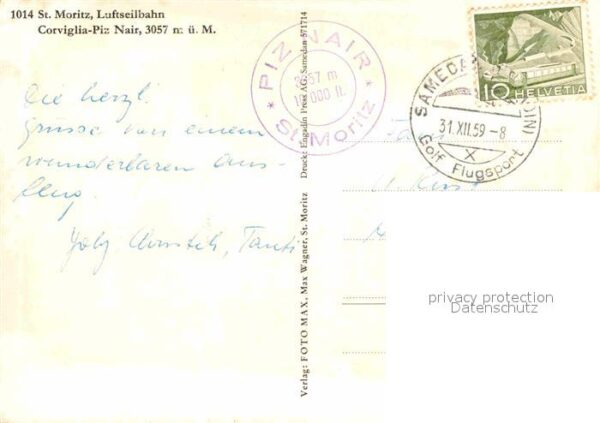 1014 St. Moritz, Luftseilbahn
Corviglia-Piz Nair, 3057 m ü. M.
Die herzl.
Grüsse von einem
wunderbaren Aus-
flug.
Tanti
Verlag: FOTO MAX, Max Wagner, St. Moritz Druck: Engadin Press AG, Samedan 571714
PIZ NAIR
3057 m
St. Moritz
10 HELVETIA
SAMEDAN
31.XII.59-8
Golf Flugsport
privacy protection
Datenschutz